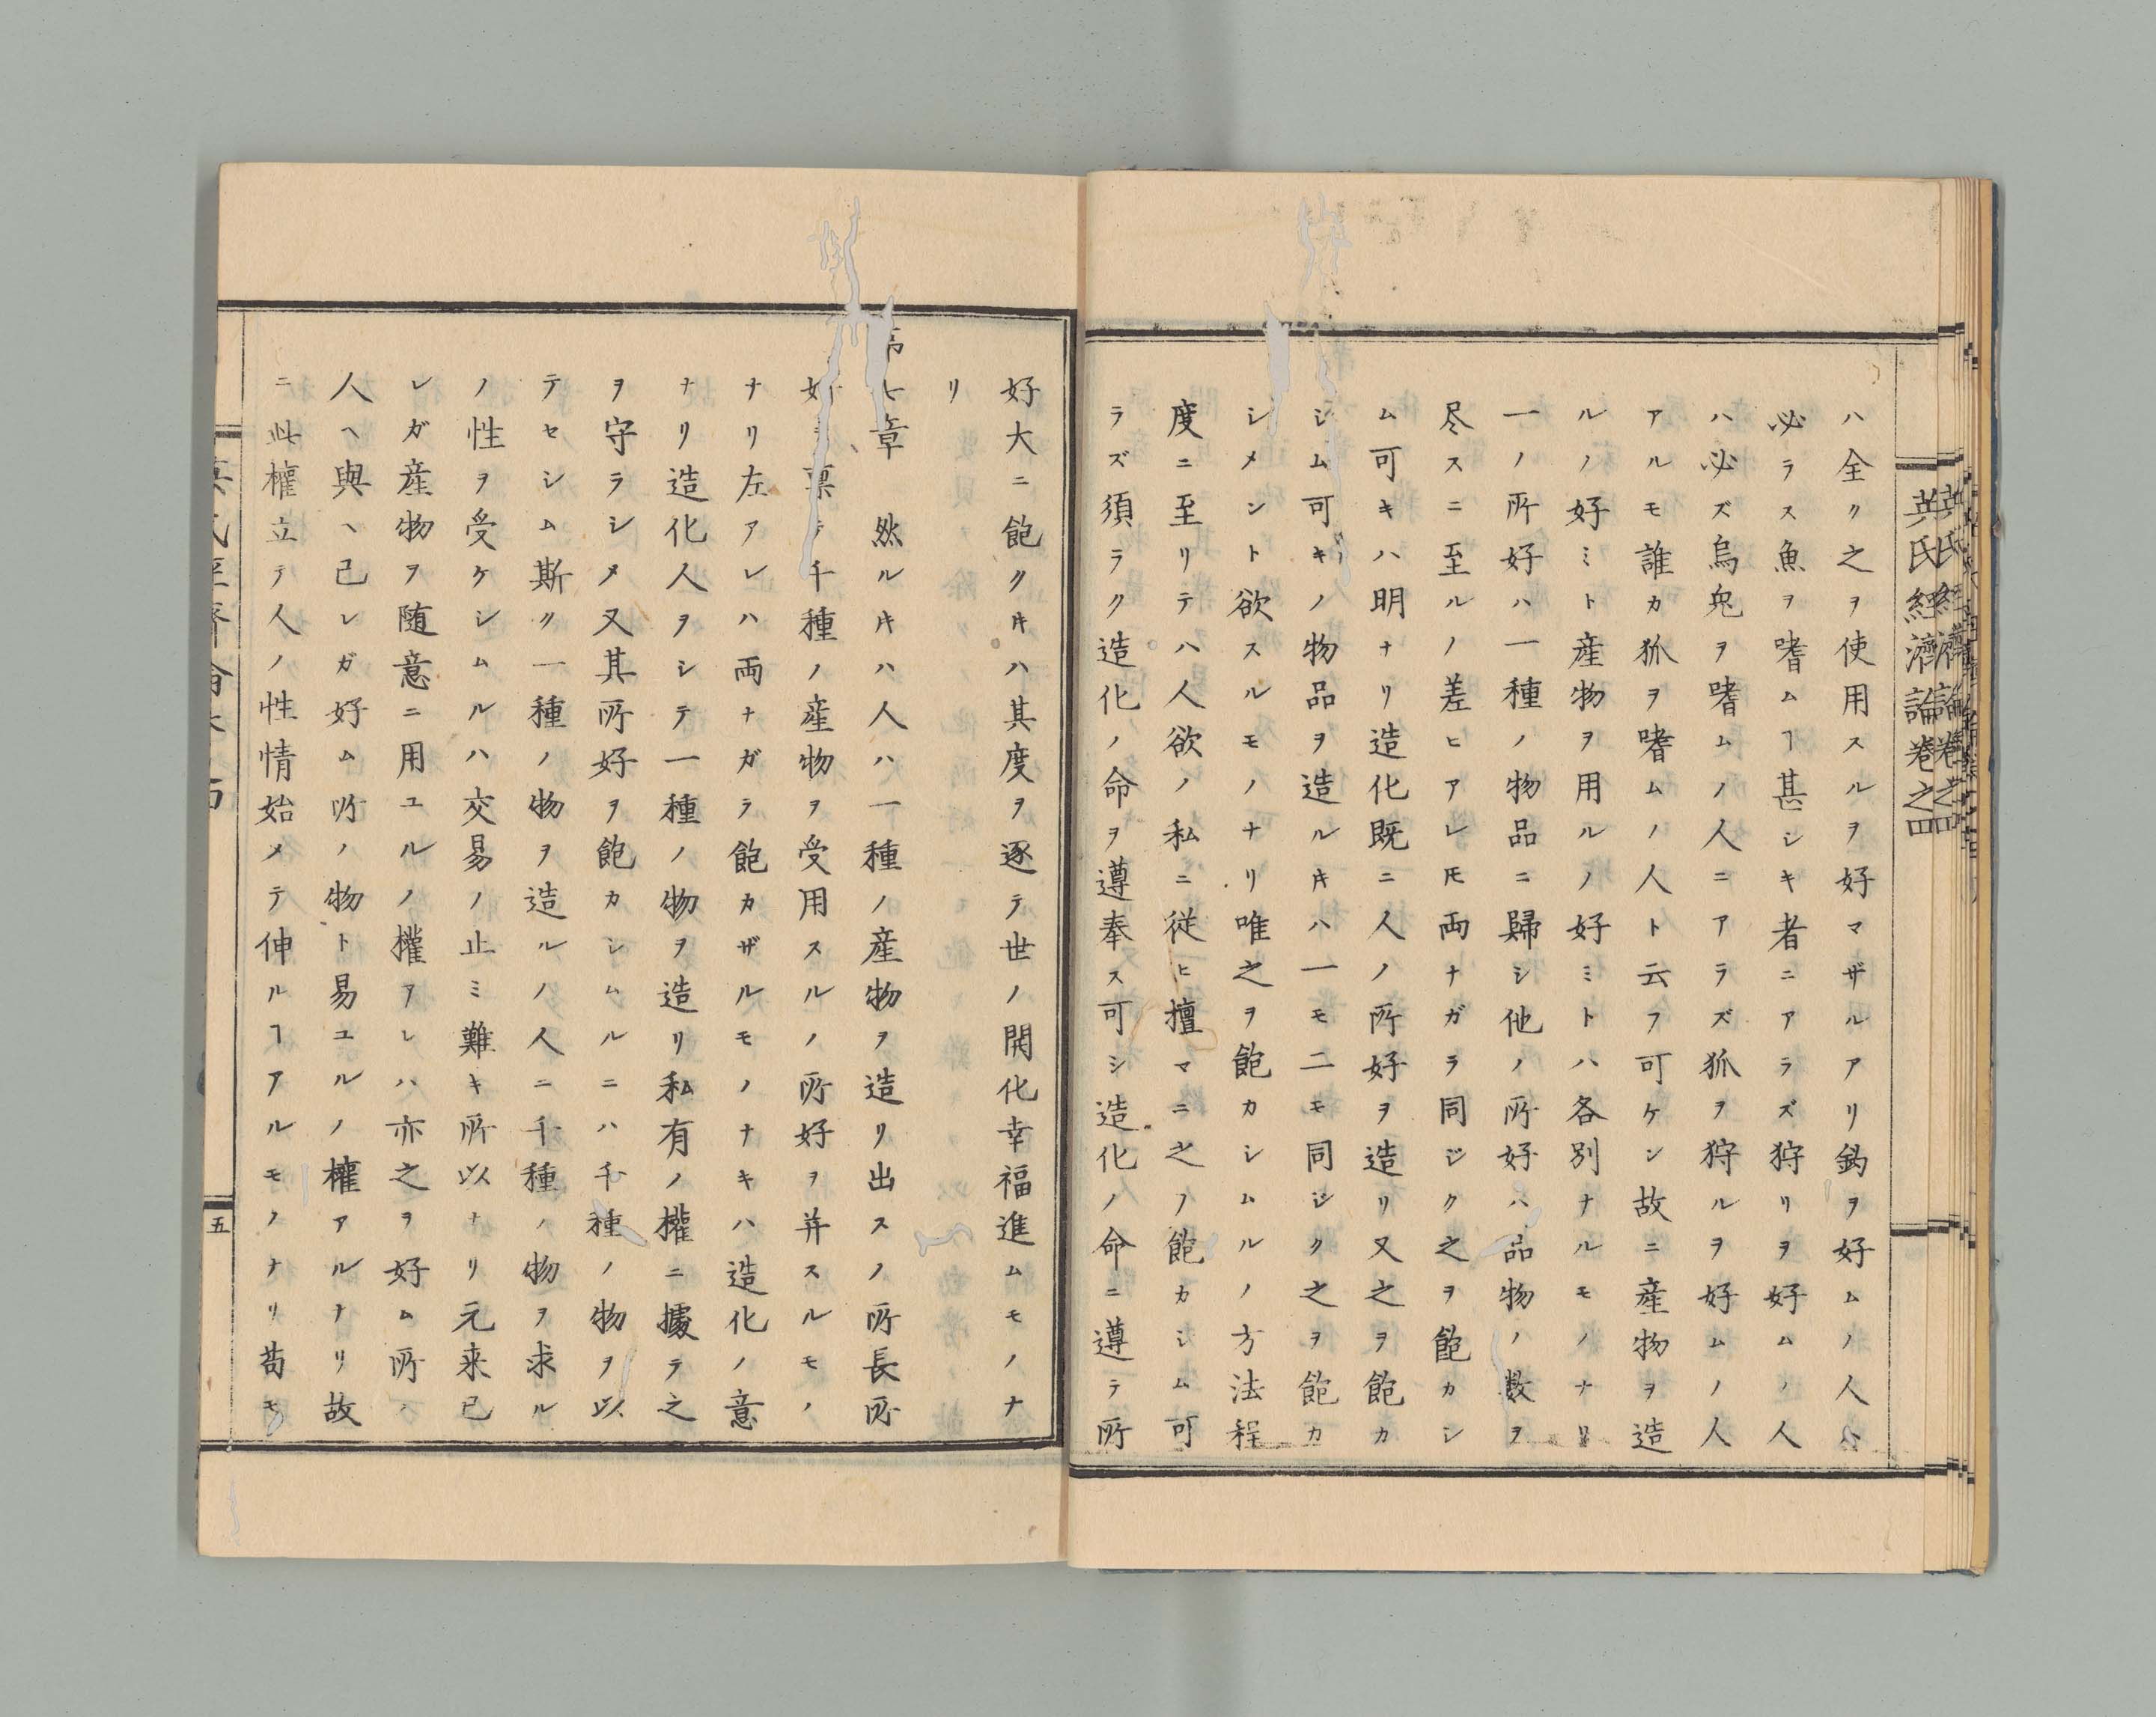 英氏經濟論卷之四
ハ全ク之ヲ使用スルヲ好マザルアリ釣ヲ好ムノ人ハ
必ラス魚ヲ嗜ムヿ甚シキ者ニアラズ狩リヲ好ムノ人
ハ必ズ烏兎ヲ嗜ムノ人ニアラズ狐ヲ狩ルヲ好ムノ人
アルモ誰カ狐ヲ嗜ムノ人ト云フ可ケン故ニ産物ヲ造
ルノ好ミト産物ヲ用ルノ好ミトハ各別ナルモノナリ
一ノ所好ハ一種ノ物品ニ歸シ他ノ所好ハ品物ノ数ヲ
尽スニ至ルノ差ヒアレ𪜈両ナガラ同ジク之ヲ飽カシ
ム可キハ明ナリ造化既ニ人ノ所好ヲ造リ又之ヲ飽カ
シム可キノ物品ヲ造ルキハ一モ二モ同ジク之ヲ飽カ
シメント欲スルモノナリ唯之ヲ飽カシムルノ方法程
度ニ至リテハ人欲ノ私ニ従ヒ擅マニ之ノ飽カシム可
ラズ須ラク造化ノ命ヲ遵奉ス可シ造化ノ命ニ遵テ所
好大ニ飽クキハ其度ヲ逐テ世ノ開化幸福進ムモノナ
リ
七章 然ルキハ人ハ一種ノ産物ヲ造リ出スノ所長所
好 稟テ千種ノ産物ヲ受用スルノ所好ヲ并スルモノ
ナリ左アレハ両ナガラ飽カザルモノナキハ造化ノ意
ナリ造化人ヲシテ一種ノ物ヲ造リ私有ノ權ニ據テ之
ヲ守ラシメ又其所好ヲ飽カシムルニハ千種ノ物ヲ以
テセシム斯ク一種ノ物ヲ造ルノ人ニ千種ノ物ヲ求ル
ノ性ヲ受ケシムルハ交易ノ止ミ難キ所以ナリ元来已
レガ産物ヲ随意ニ用ユルノ權アレハ亦之ヲ好ム所ノ
人ヘ與ヘ己レガ好ム所ノ物ト易ユルノ權アルナリ故
ニ此權立テ人ノ性情始メテ伸ルヿアルモノナリ苟モ
五